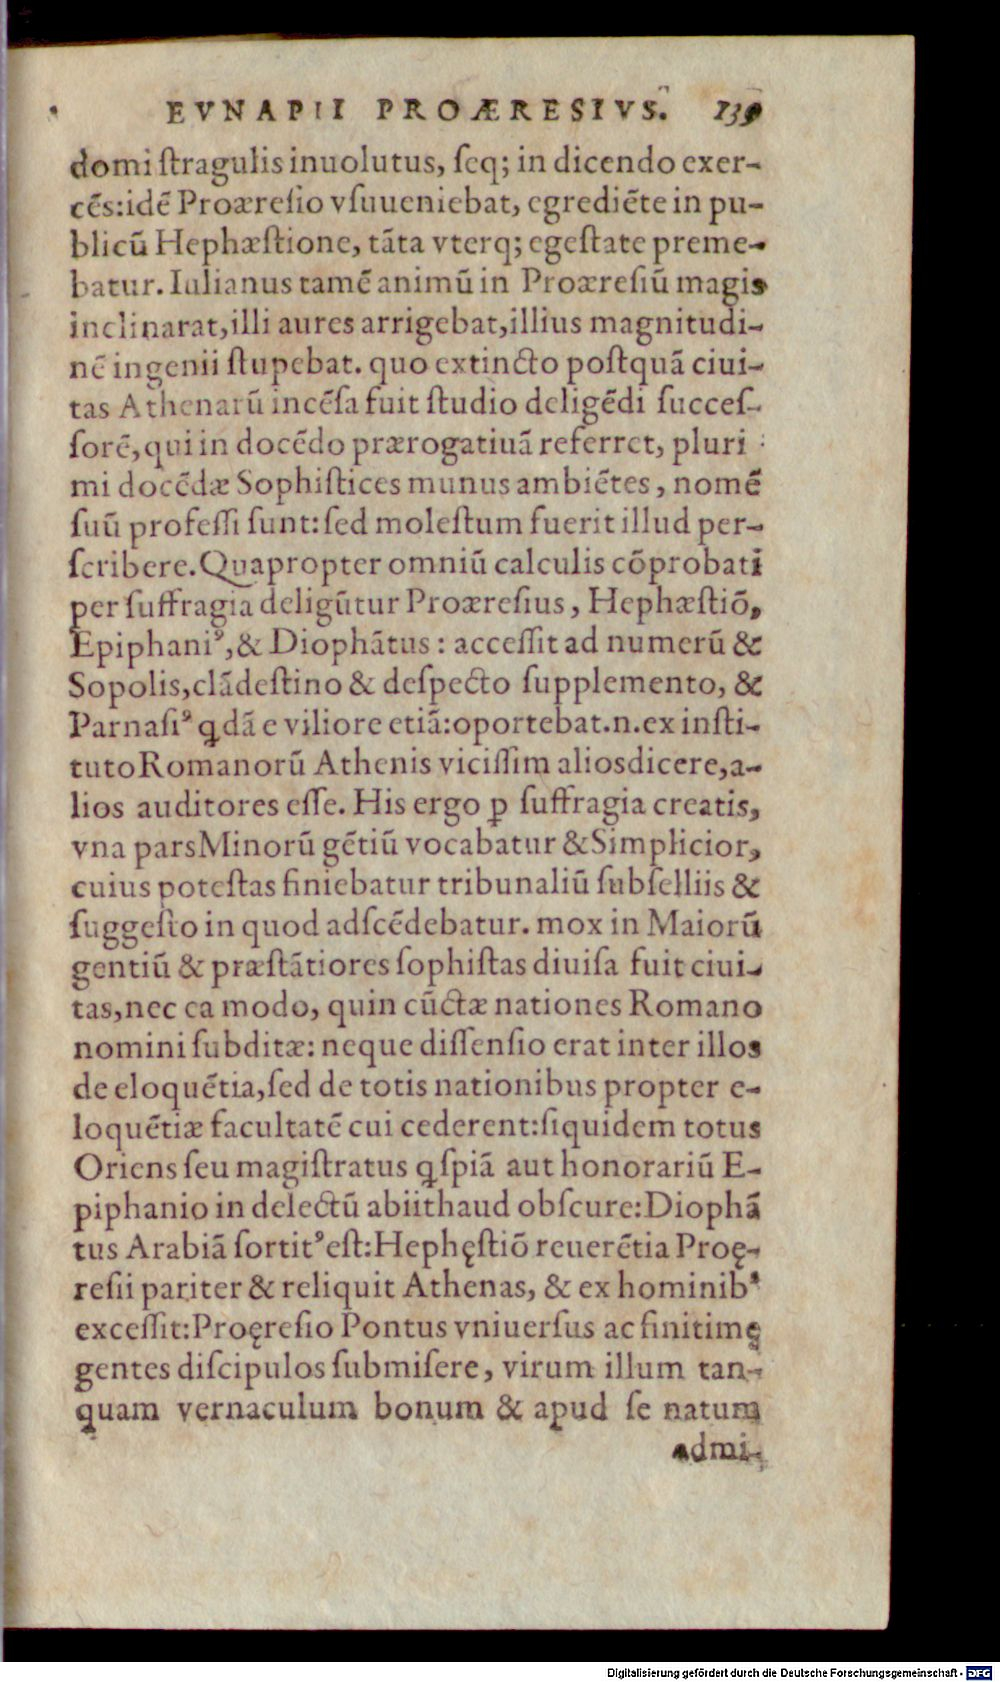 EVNAPII PROÆRESIVS. 139
domi ſtragulis inuolutus, ſeq; in dicendo exer-
cẽs:idẽ Proæreſio vſuueniebat, egrediẽte in pu-
blicũ Hephæſtione, tãta vterq; egeſtate preme-
batur. Iulianus tamẽ animũ in Proæreſiũ magis
inclinarat,illi aures arrigebat,illius magnitudi-
nẽ ingenii ſtupebat. quo extincto poſtquã ciui-
tas Athenarũ incẽſa fuit ſtudio deligẽdi ſucceſ-
ſorẽ,qui in docẽdo prærogatiuã referret, pluri
mi docẽdæ Sophiſtices munus ambiẽtes, nomẽ
ſuũ profeſſi ſunt:ſed moleſtum fuerit illud per-
ſcribere. Quapropter omniũ calculis cõprobati
per ſuffragia deligũtur Proæreſius, Hephæſtiõ,
Epiphaniꝰ,& Diophãtus: acceſſit ad numerũ &
Sopolis,clãdeſtino & deſpecto ſupplemento, &
Parnaſiꝰ ꝗdã e viliore etiã:oportebat.n.ex inſti-
tuto Romanorũ Athenis viciſſim alios dicere,a-
lios auditores eſſe. His ergo ꝑ ſuffragia creatis,
vna pars Minorũ gẽtiũ vocabatur & Simplicior,
cuius poteſtas finiebatur tribunaliũ ſubſelliis &
ſuggeſto in quod adſcẽdebatur. mox in Maiorũ
gentiũ & præſtãtiores ſophiſtas diuiſa fuit ciui-
tas,nec ea modo, quin cũctæ nationes Romano
nomini ſubditæ: neque diſſenſio erat inter illos
de eloquẽtia,ſed de totis nationibus propter e-
loquẽtiæ facultatẽ cui cederent:ſiquidem totus
Oriens ſeu magiſtratus ꝗſpiã aut honorariũ E-
piphanio in delectũ abiit haud obſcure:Diophã
tus Arabiã ſortitꝰ eſt:Hephęſtiõ reuerẽtia Proę-
reſii pariter & reliquit Athenas, & ex hominibꝰ
exceſſit:Proęreſio Pontus vniuerſus ac finitimę
gentes diſcipulos ſubmiſere, virum illum tan-
quam vernaculum bonum & apud ſe natum
admi-
Digitalisierung gefördert durch die Deutsche Forschungsgemeinschaft - DFG